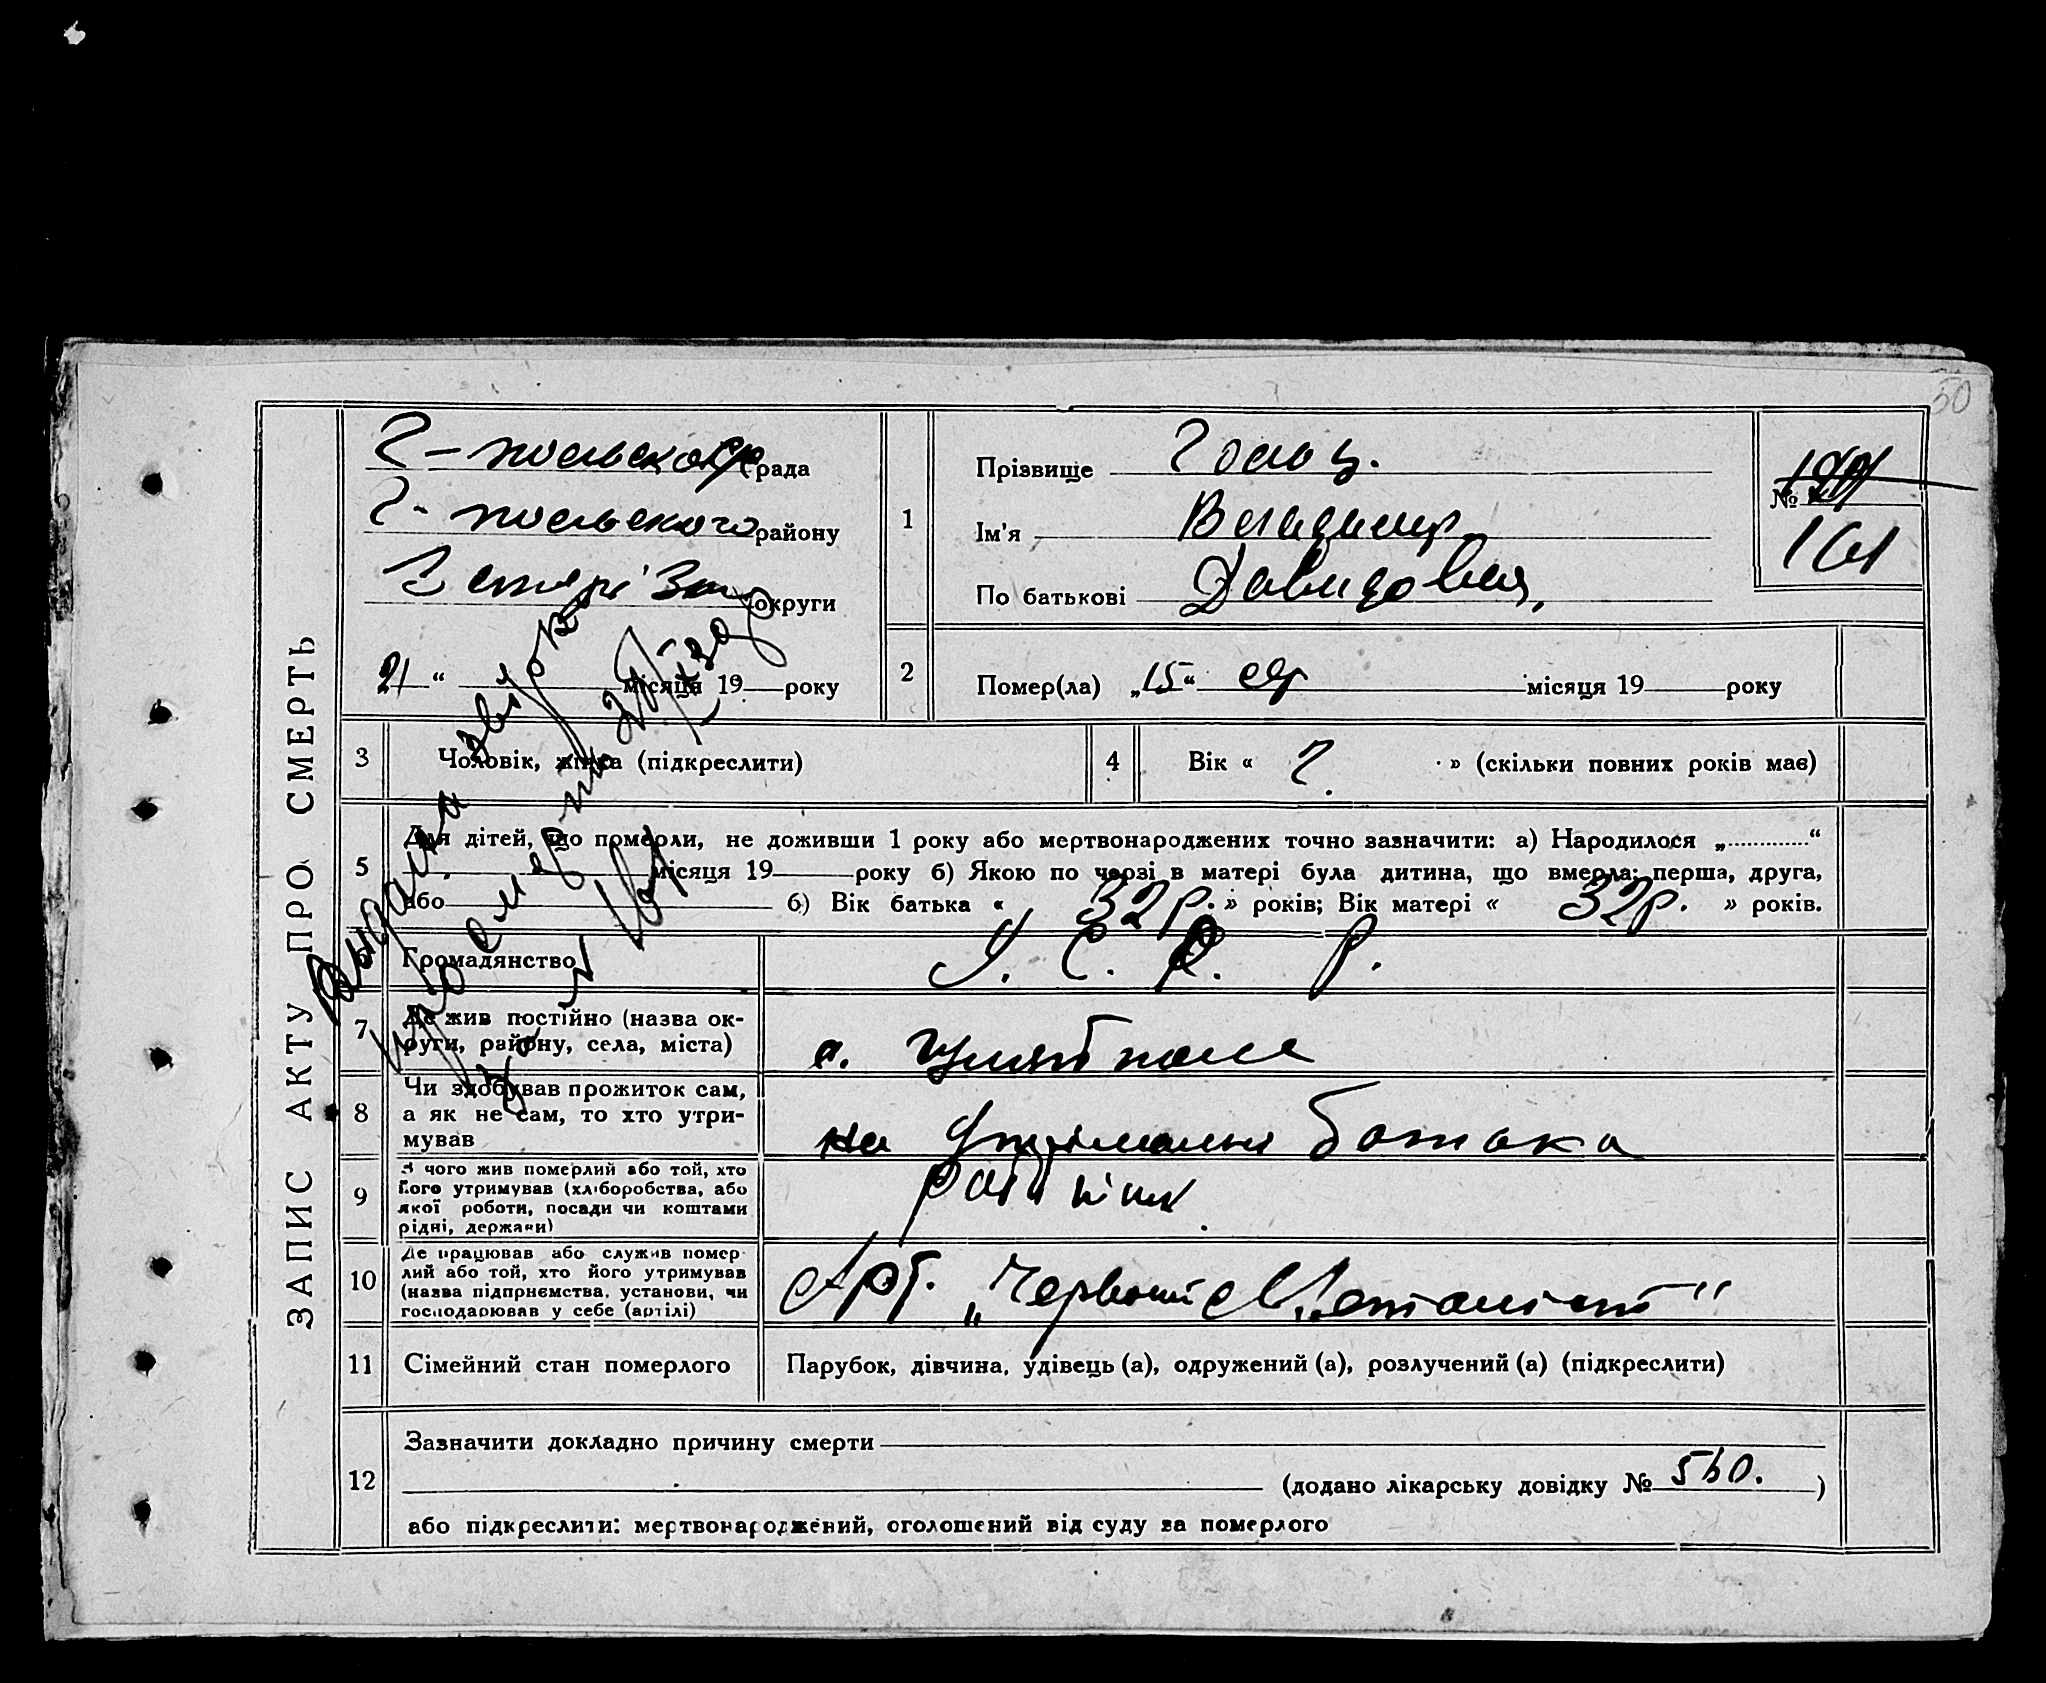 50
ЗАПИС АКТУ ПРО СМЕРТЬ
Г-польська рада
Г-польского району
округи
21 " місяця 19 року
1
Прізвище
Ім'я Владимир
По батькові Давидович,
№
161
2
Помер(ла) „15" місяця 19 року
3
Чоловік, жінка (підкреслити)
4
Вік « 2. » (скільки повних років має)
5
Для дітей, що померли, не доживши 1 року або мертвонароджених точно зазначити: а) Народилося „ “
місяця 19 року б) Якою по черзі в матері була дитина, що вмерла: перша, друга,
або б) Вік батька « 32р. » років; Вік матері « 32р. » років.
6
Громадянство
У. С. Р. Р.
7
Де жив постійно (назва ок-
руги, району, села, міста)
с. Гуляйполе
8
Чи здобував прожиток сам,
а як не сам, то хто утри-
мував
на утрiманнi батька
9
З чого жив померлий або той, хто
його утримував (хліборобства, або
якої роботи, посади чи коштами
рідні, держави)
робітник
10
Де працював або служив помер
лий або той, хто його утримував
(назва підприємства, установи, чи
господарював у себе (артілі)
Арт. „Червоний Металіст"
11
Сімейний стан померлого
Парубок, дівчина, удівець (а), одружений (а), розлучений (а) (підкреслити)
12
Зазначити докладно причину смерти
(додано лікарську довідку № 560. )
або підкреслити: мертвонароджений, оголошений від суду за померлого